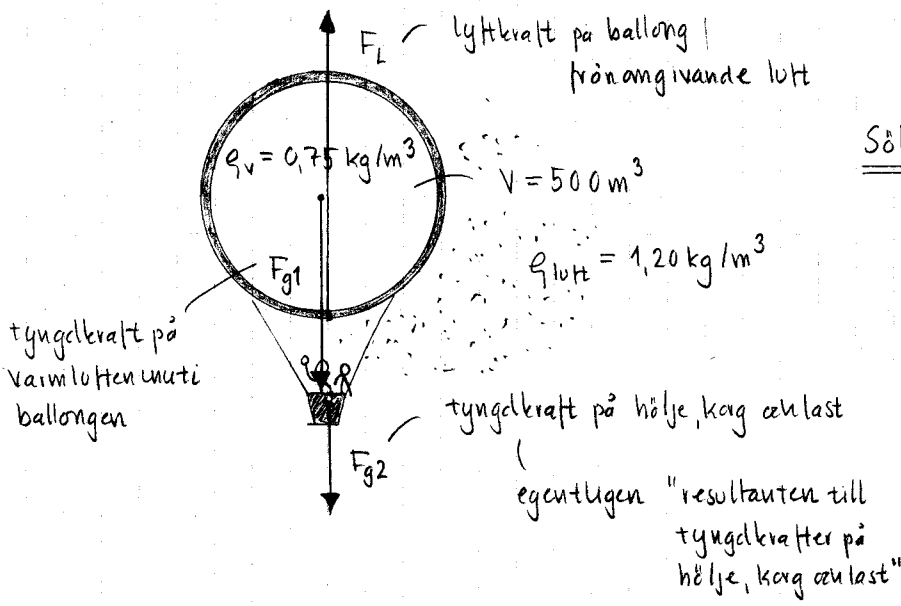 F_L lyftkraft på ballong
från omgivande luft
Söl
ρ_v = 0,75 kg/m³
V = 500 m³
ρ_luft = 1,20 kg/m³
F_g1
tyngdkraft på
varmluften inuti
ballongen
tyngdkraft på hölje, korg och last
F_g2
egentligen "resultanten till
tyngdkrafter på
hölje, korg och last"